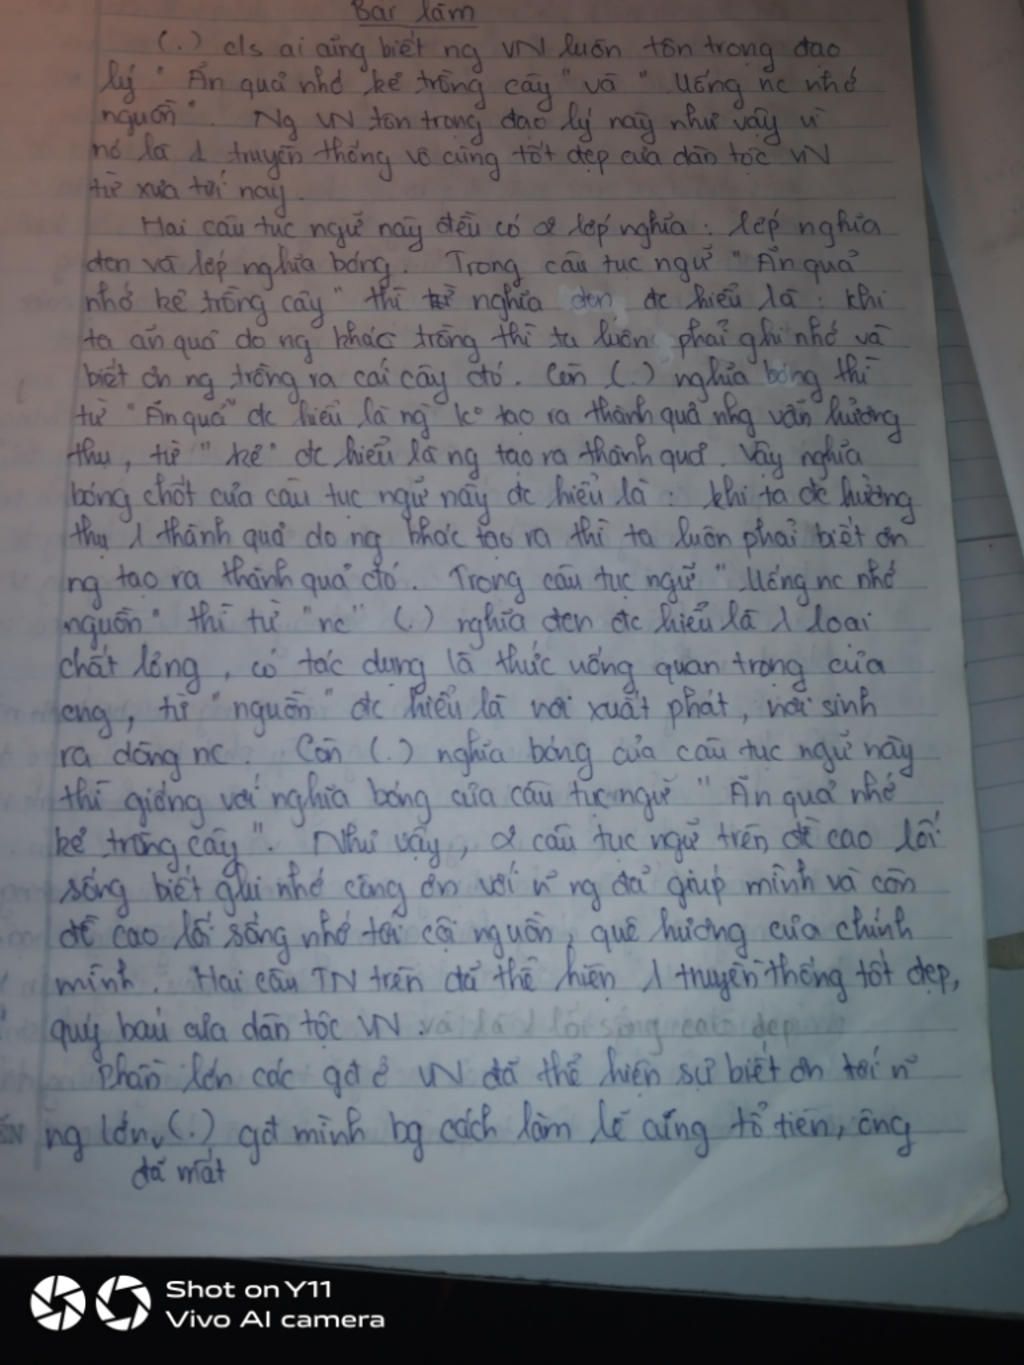 Bài làm
(.) c/s ai cũng biết ng VN luôn tôn trọng đạo
lý " Ăn quả nhớ kẻ trồng cây " và " Uống nc nhớ
nguồn ". Ng VN tôn trọng đạo lý này như vậy vì
nó là 1 truyền thống vô cùng tốt đẹp của dân tộc VN
từ xưa tới nay.
Hai câu tục ngữ này đều có 2 lớp nghĩa : lớp nghĩa
đen và lớp nghĩa bóng. Trong câu tục ngữ " Ăn quả
nhớ kẻ trồng cây " thì nghĩa đen đc hiểu là : khi
ta ăn quả do ng khác trồng thì ta luôn phải ghi nhớ và
biết ơn ng trồng ra cái cây đó. Còn (.) nghĩa bóng thì
từ " Ăn quả " đc hiểu là ng k° tạo ra thành quả nhg vẫn hưởng
thụ, từ " kẻ " đc hiểu là ng tạo ra thành quả. Vậy nghĩa
bóng chốt của câu tục ngữ này đc hiểu là : khi ta đc hưởng
thụ 1 thành quả do ng khác tạo ra thì ta luôn phải biết ơn
ng tạo ra thành quả đó. Trong câu tục ngữ " Uống nc nhớ
nguồn " thì từ " nc " (.) nghĩa đen đc hiểu là 1 loại
chất lỏng, có tác dụng là thức uống quan trọng của
cng, từ " nguồn " đc hiểu là nơi xuất phát, nơi sinh
ra dòng nc. Còn (.) nghĩa bóng của câu tục ngữ này
thì giống với nghĩa bóng của câu tục ngữ " Ăn quả nhớ
kẻ trồng cây ". Như vậy, 2 câu tục ngữ trên đề cao lối
sống biết ghi nhớ công ơn với n~ ng đã giúp mình và còn
đề cao lối sống nhớ tới cội nguồn, quê hương của chính
mình. Hai câu TN trên đã thể hiện 1 truyền thống tốt đẹp,
quý báu của dân tộc VN. và là 1 lối sống cao đẹp
Phần lớn các gđ ở VN đã thể hiện sự biết ơn tới n~
ng lớn (.) gđ mình bg cách làm lễ cúng tổ tiên, ông
đã mất
Shot on Y11
Vivo AI camera